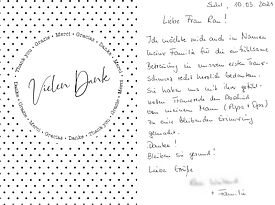 Thank you • Gracias • Merci • Grazie • Danke • Thank you • Grazie • Merci • Gracias • Danke
Vielen Dank
Suhl, 10.05.2021
Liebe Frau Rau!
Ich möchte mich auch im Namen
meiner Familie für die einfühlsame
Betreuung in unserer ersten Trauer-
recht herzlich bedanken.
Sie haben uns mit ihrer gefühl-
vollen Trauerrede den Abschied
von meinem Mann (Papa + Opa)
zu einer bleibenden Erinnerung
gemacht.
Danke!
Bleiben Sie gesund!
Liebe Grüße
+ Familie